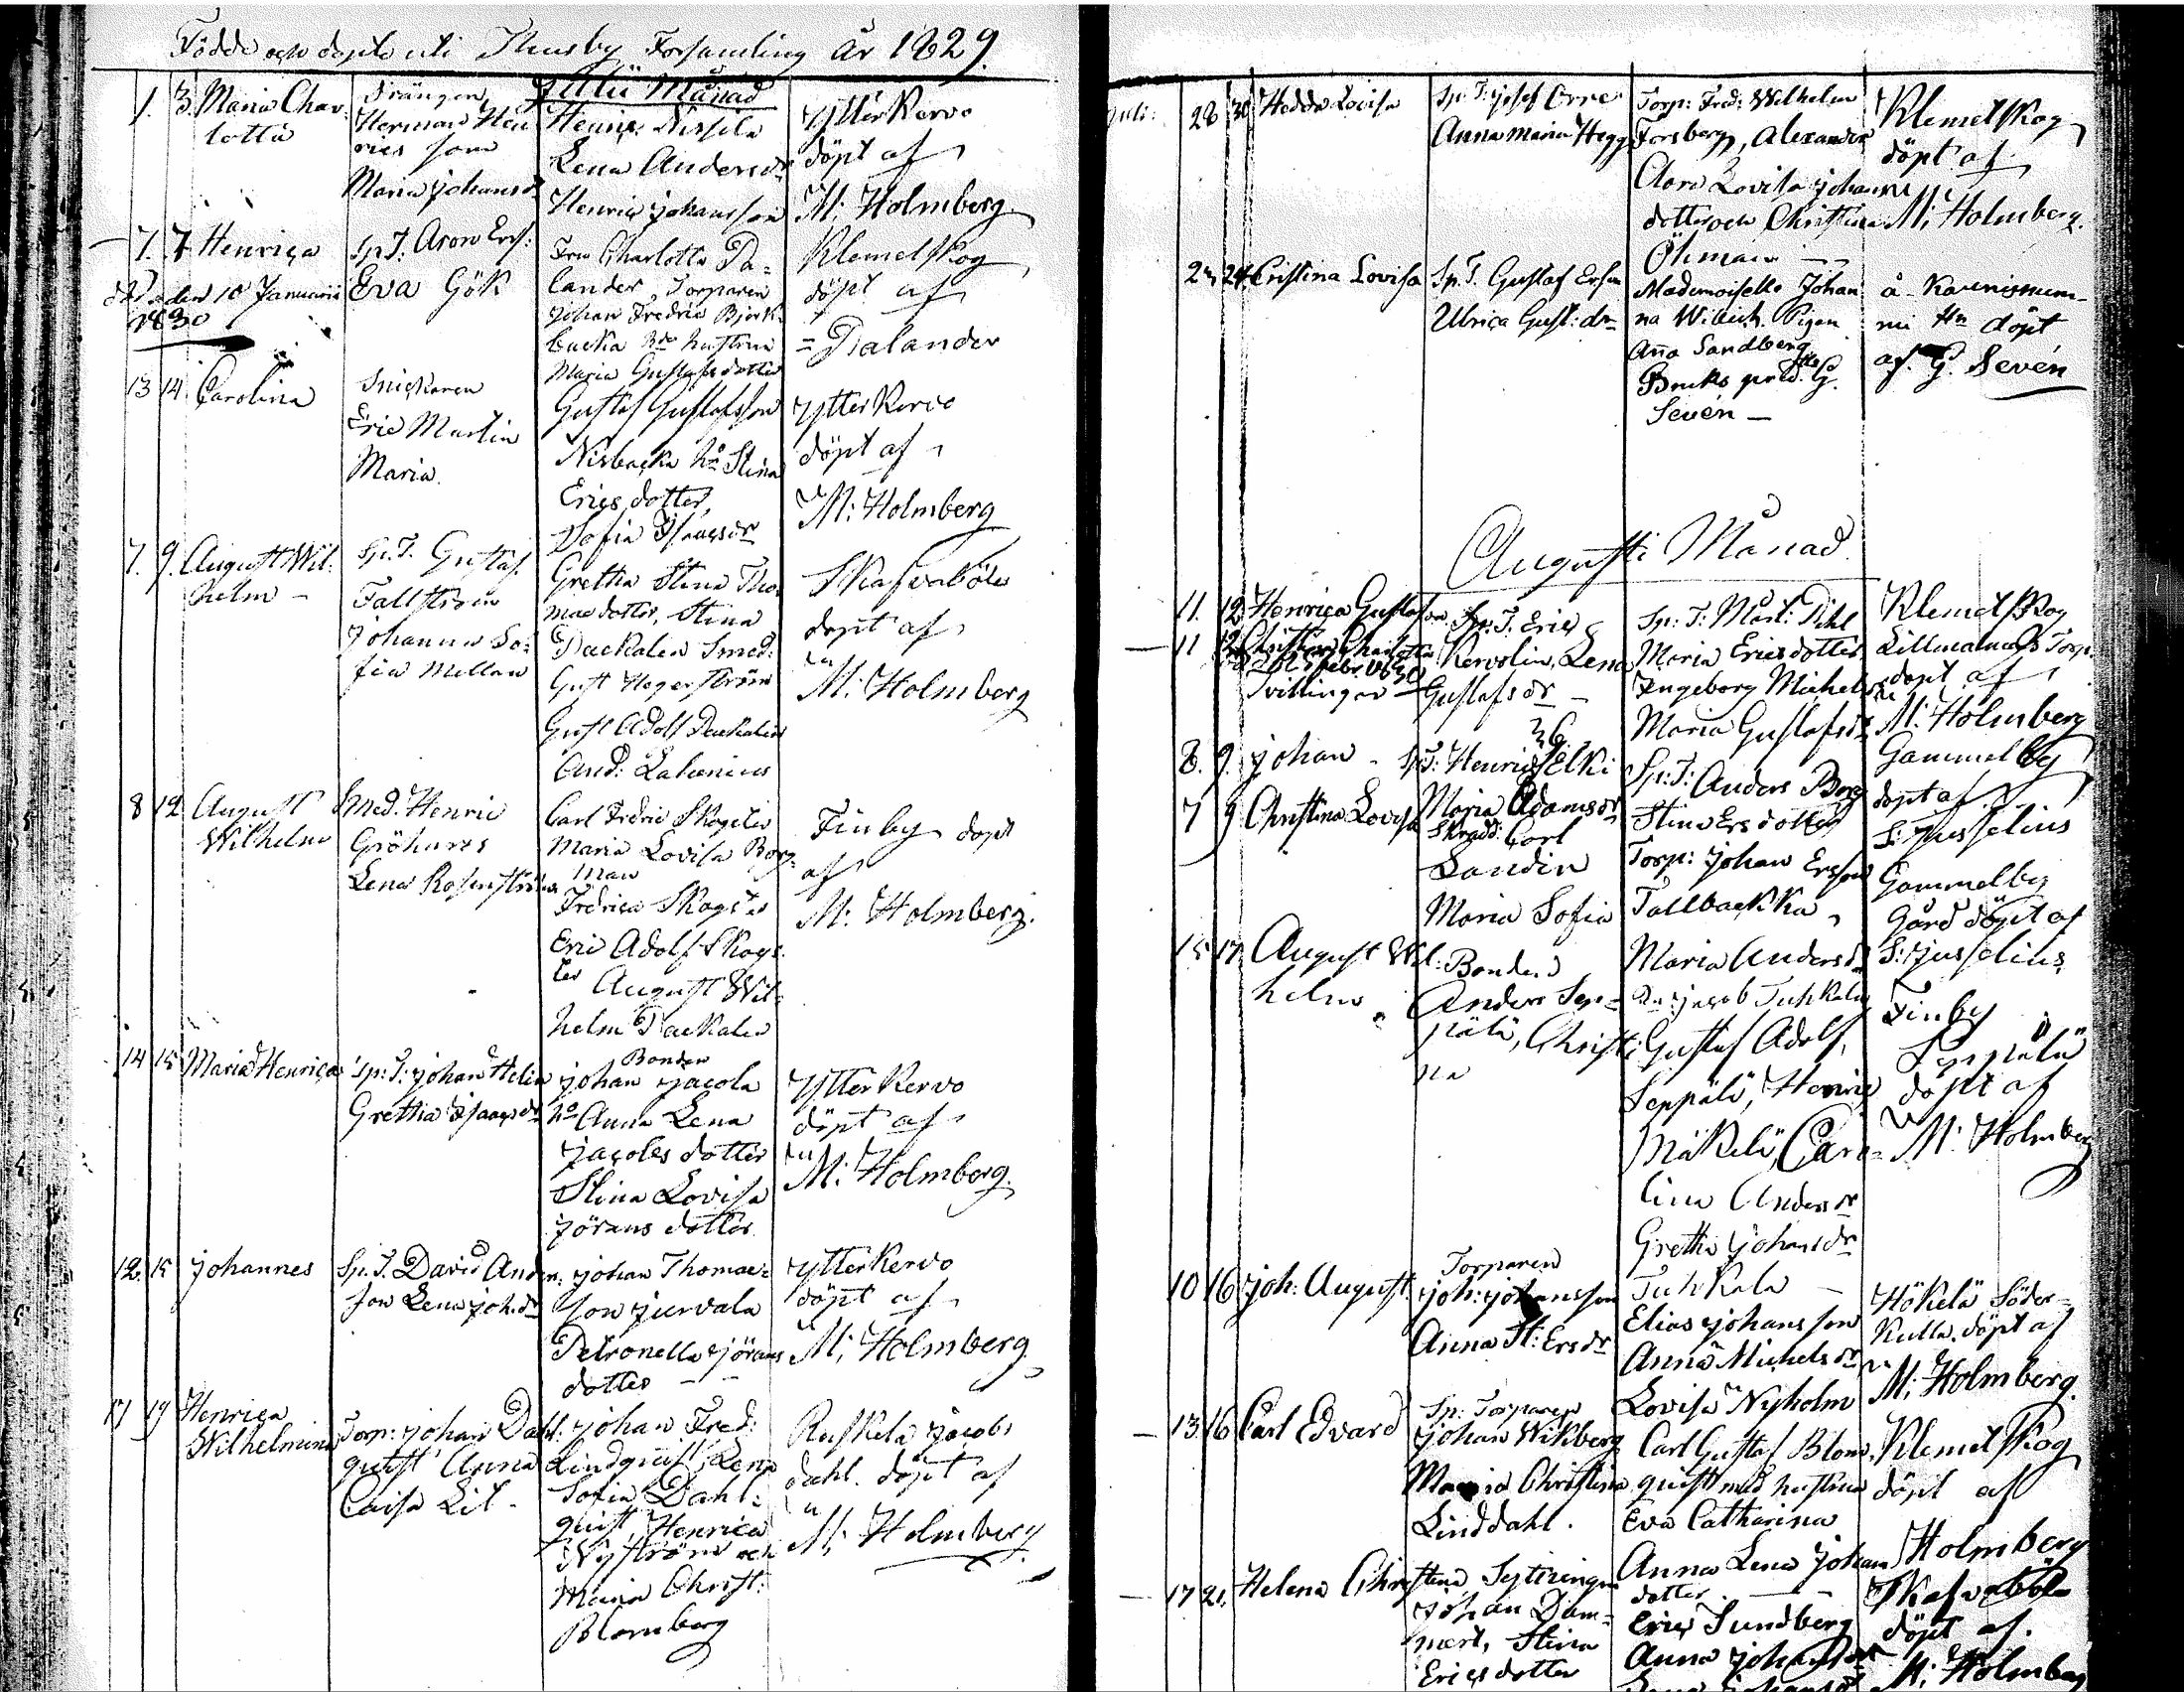 Födde och döpte uti Thusby Församling År 1829.
Julii Månad
1. 3. Maria Char-
lotta
Drängen
Herman Hen
rics son
Maria Johansdr
Henric Nissila
Lena Andersdr
Henric Johansson
Ytter Kervo
döpt af
M: Holmberg
7. 7. Henrica
död den 10 Januarii
1830
Sp. T: Aron Ers:
Eva Gök
Fru Charlotta Pa-
lander, Torparen
Johan Fredric Björk-
backa hustrun
Maria Gustafsdotter
Klemetskog
döpt af
Palander
13 14. Carolina
Snickaren
Eric Martin
Maria.
Gustaf Gustafsson
Nisbacka ho Stina
Erics dotter,
Sofia Isaacsdr
Ytter Kervo
döpt af
M: Holmberg
7. 9. August Wil-
helm -
Sp. T. Gustaf
Fallström
Johanna So-
fia Mellan
Gretha Stina Tho
mas dotter, Stina
Packalen Smed:
Gust Hegerström
Gust Adolf Packalen
And: Lalenius
Skafvaböle
döpt af
M: Holmberg
8 12 August
Wilhelm
Smed. Henric
Gröhnros
Lena Rosenström
Carl Fredric Skogster
Maria Lovisa Borg-
man
Fredrica Skogster
Eric Adolf Skogs-
ter August Wil-
helm Packalen
Finby döpt
af
M: Holmberg.
14 15 Maria Henrica
Sp: T: Johan Helin
Gretha Isaacsdr
Bonden
Johan Jacola
ho Anna Lena
Jacobs dotter
Stina Lovisa
Jörans dotter
Ytter Kervo
döpt af
M: Holmberg.
12. 15 Johannes
Sp. T. David Anders-
son Lena Joh. dr
Johan Thomas-
son Jurvala
Petronella Jörans
dotter - -
Ytter Kervo
döpt af
M: Holmberg
17 19 Henrica
Wilhelmina
Torp: Johan Dahl-
quist Anna
Caisa Lil -
Johan Fred:
Lindquist, Lena
Sofia Dahl-
quist, Henrica
Nyström och
Maria Christ:
Blomberg
Ruskela Jacobs
dahl. döpt af
M: Holmberg
Juli: 28 30 Hedda Lovisa
Sp: T: Josef Orre
Anna Maria Hegg
Torp: Fred: Wilhelm
Forsberg, Alexandra
Clara Lovisa Johans
dotter och Christina
Öhman
Klemetskog
döpt af
M: Holmberg.
24 Cristina Lovisa
Sp. T. Gustaf Ersson
Ulrica Gust: dr
Mademoiselle Johan
na Willich. Pigan
Anna Sandberg
Bruks pred. G.
Sevén -
döpt
af. G. Sevén
Augusti Månad
11. 12 Henrica Gustafva
11 12 Christina Charlotta
Tvillingar
Sp. T. Eric
Kervolin, Lena
Gustafsdr -
Sp: T: Mårt: Pihl
Maria Ericsdotter
Ingeborg Michelsdr
Maria Gustafsdr
Klemetskog
Lillmalmas Torp
döpt af
M: Holmberg
8. 9. Johan -
Sp. T: Henric Elki
Maria Adamsdr
Sp: T: Anders Borg
Stina Ersdotter
Gammelby
döpt af
S: Jusselius
7 9 Christina Lovisa
Skradd: Carl
Landin
Maria Sofia
Torp: Johan Ersson
Tallbackka,
Maria Andersdr
Gammelby
Gård döpt af
S: Jusselius
15 17. August Wil-
helm
Bonden
Anders Sep-
pälä, Christi
na
Jacob Tuhkala
Gustaf Adolf,
Seppälä, Henric
Mäkelä, Caro-
lina Andersdr
Gretha Johansdr
Tuhkala -
Finby
Seppälä
döpt af
M: Holmberg
10 16 Joh: August
Torparen
Joh: Johansson
Anna St: Ersdr
Elias Johansson
Anna Michelsdr
Lovisa Nyholm
Hökelä Söder-
kulla. döpt af
M: Holmberg.
13 16 Carl Edvard
Sp: Torparen
Johan Wikberg
Maria Christina
Linddahl.
Carl Gustaf Blom-
quist med hustrun
Eva Catharina
Anna Lena Johans
dotter
Klemetskog
döpt af
Holmberg
17 21. Helena Christina
Sytningen
Johan Dam-
mert, Stina
Ericsdotter
Eric Sundberg
Anna Johansdr
Lena Johansdr
Skafvaböle
döpt af.
M: Holmberg